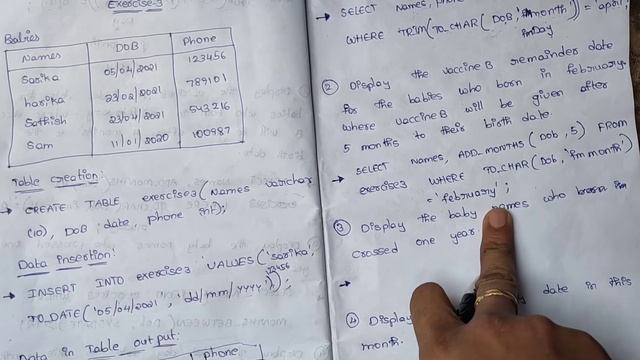 Exercise-3
Babies
Names DOB Phone
Sarika 05/04/2021 123456
harika 23/02/2021 789101
Sathish 23/04/2021 543216
Sam 11/01/2020 100987
Table creation:
→ CREATE TABLE exercise3(Names varchar
(10), DOB date, phone int);
Data insertion:
→ INSERT INTO exercise3 VALUES('sarika',
TO_DATE('05/04/2021', 'dd/mm/yyyy'), 123456);
Data in Table output:
phone
→ SELECT names,
WHERE TRIM(TO_CHAR(DOB, 'month')) = 'april'
② Display the vaccineB remainder date
for the babies who born in february.
where vaccineB will be given after
5 months to their birth date.
→ SELECT names, ADD_MONTHS(Dob, 5) FROM
exercise3 WHERE TO_CHAR(Dob, 'fmmonth')
= 'february';
③ Display the baby names who
crossed one year
→
④ Display date in this
month.